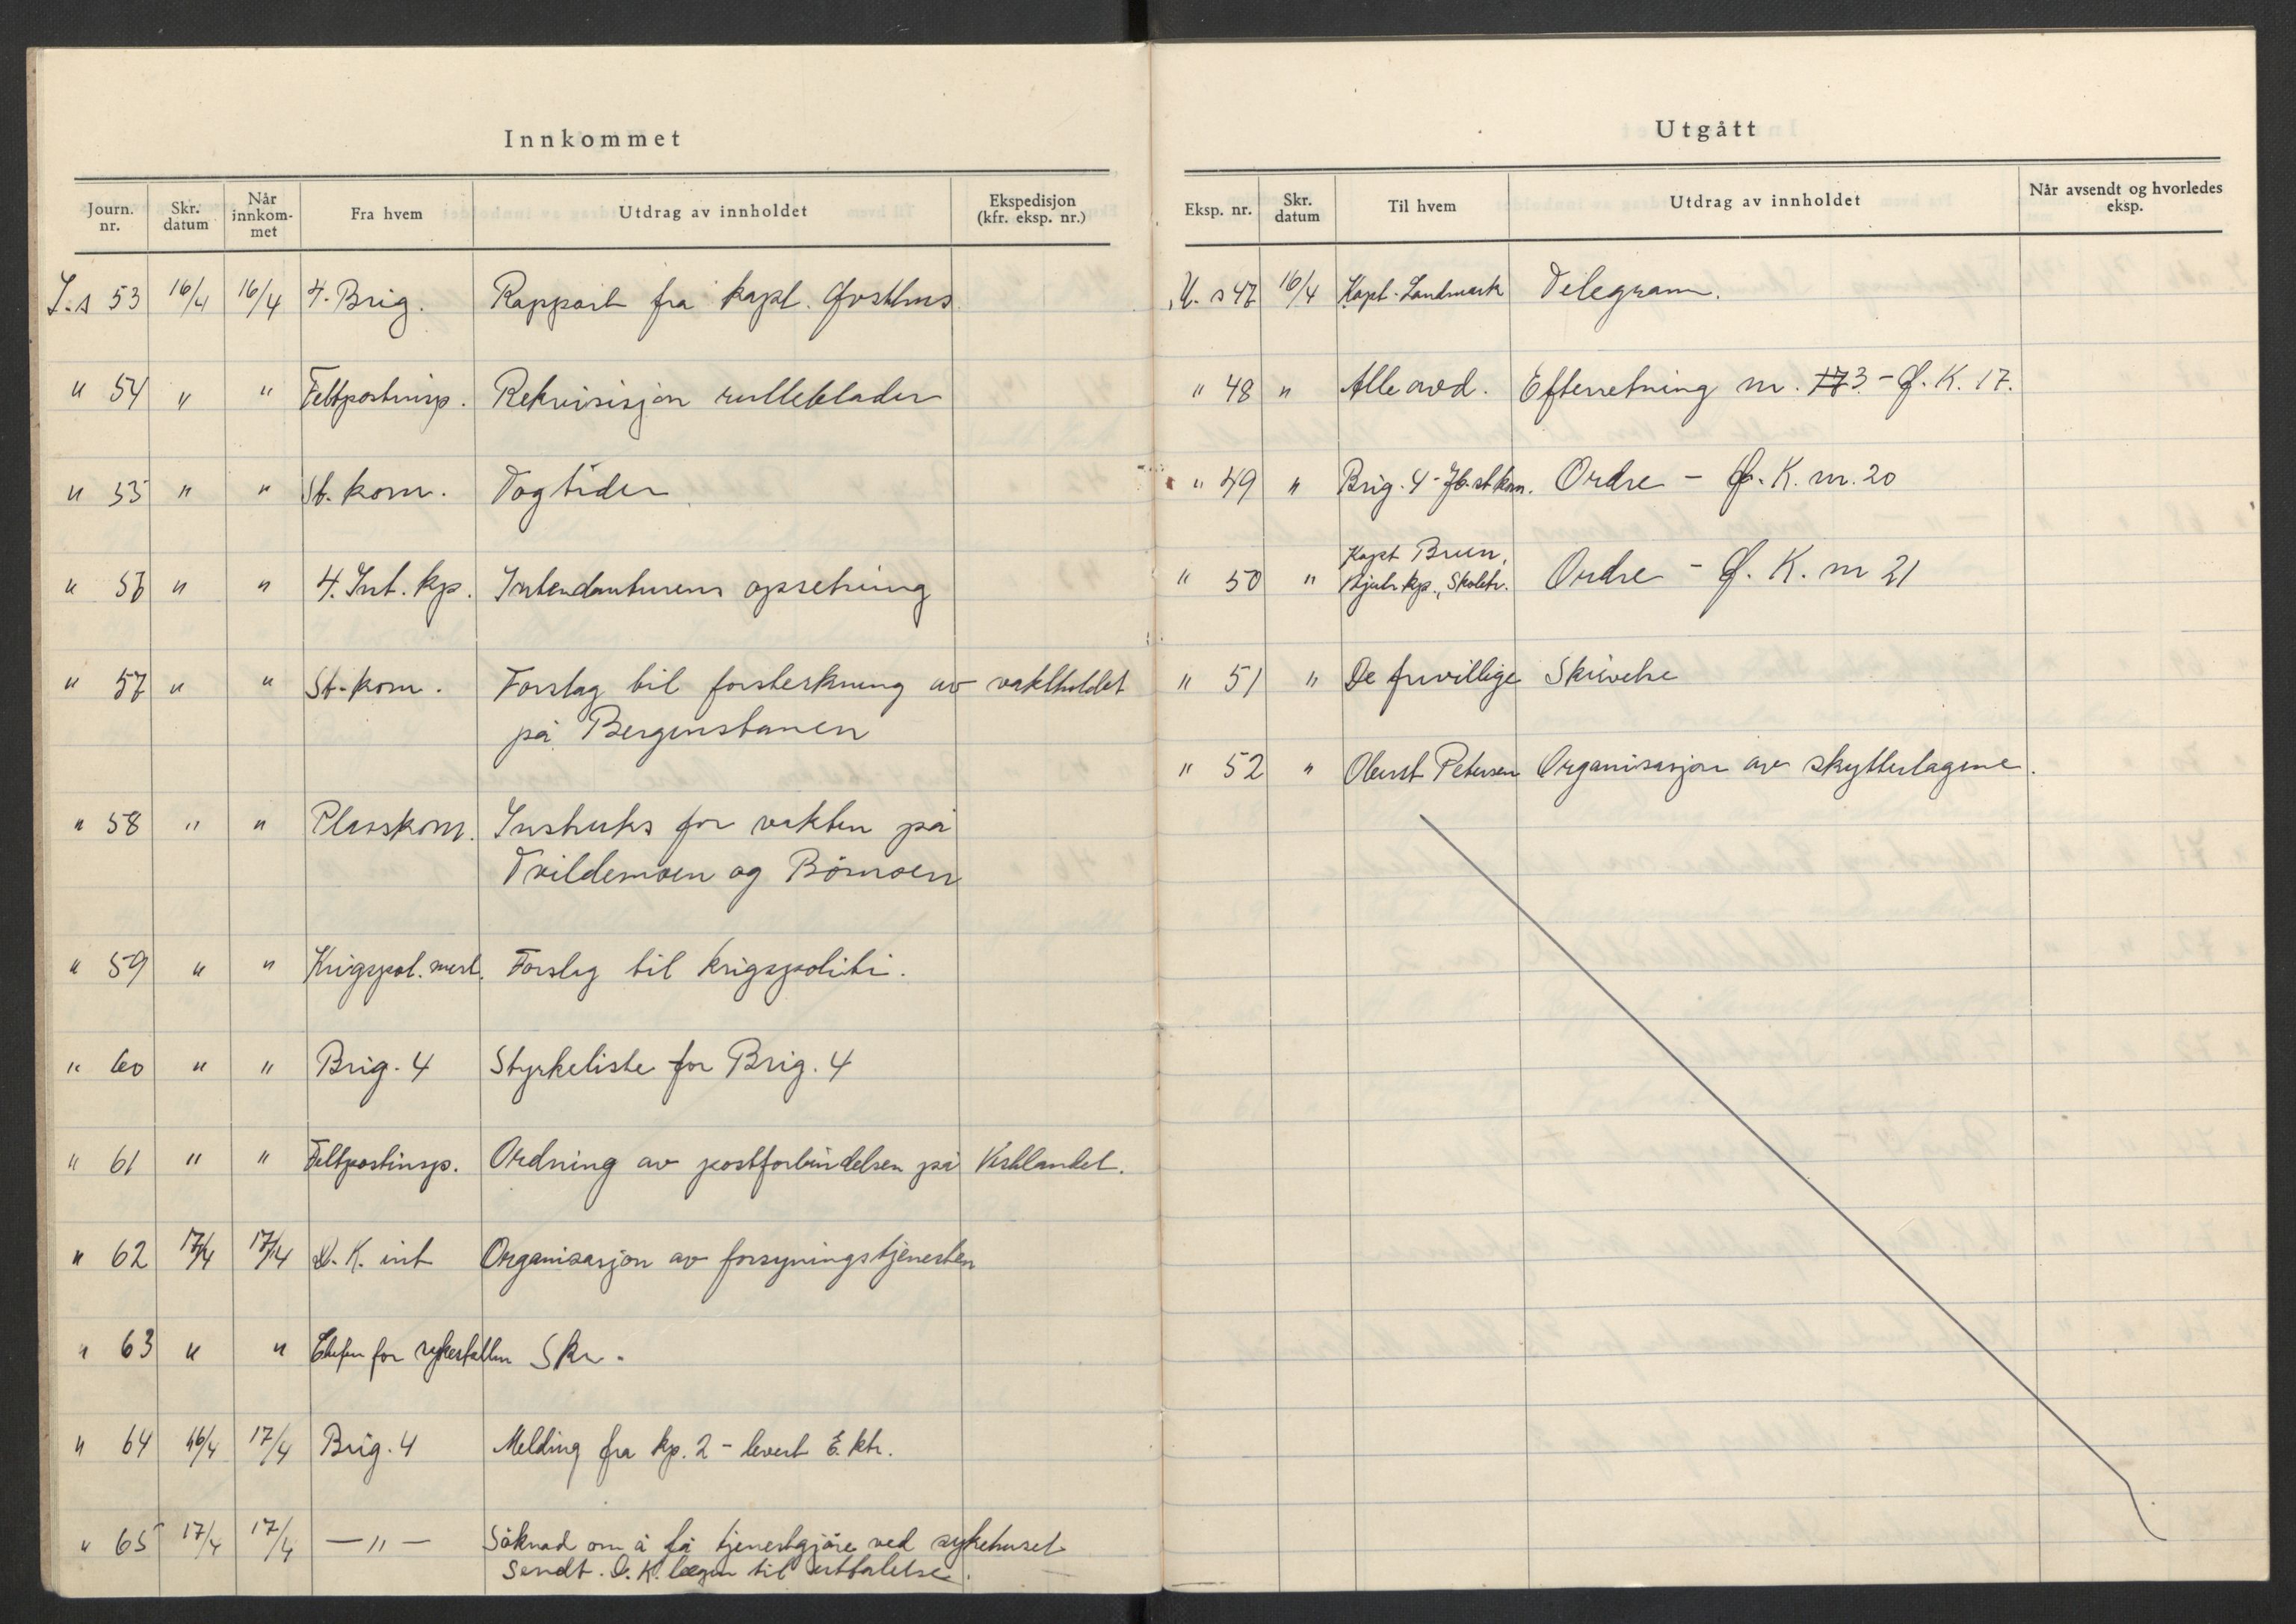 Innkommet
Journ. nr. Skr. datum Når innkom-met Fra hvem Utdrag av innholdet Ekspedisjon (kfr. eksp. nr.)
J.s 53 16/4 16/4 4. Brig. Rapport fra kapt.
" 54 " " Feltpostinsp. Rekvisisjon rulleblader
" 55 " " St. kom. Togtider
" 56 " " 4. Int. kp. Intendanturens opsetning
" 57 " " St. kom. Forslag til forsterkning av vaktholdet
på Bergensbanen
" 58 " " Plasskom. Instruks for vakten på
Tvildemoen og Bömoen
" 59 " " Krigspol. mest. Forslag til krigspoliti.
" 60 " " Brig. 4 Styrkeliste for Brig. 4
" 61 " " Feltpostinsp. Ordning av postforbindelsen på Vestlandet.
" 62 17/4 17/4 D.K. int Organisasjon av forsyningstjenesten
" 63 " " Chefen for sykestallen Skr.
" 64 16/4 17/4 Brig. 4 Melding fra kp. 2 - levert E. ktr.
" 65 17/4 17/4 — " — Söknad om å få tjenestgjöre ved sykehuset
Sendt D.K. lægen til uttalelse.
Utgått
Eksp. nr. Skr. datum Til hvem Utdrag av innholdet Når avsendt og hvorledes eksp.
U. s 47 16/4 Kapt. Landmark Telegram.
" 48 " Alle avd. Efterretning nr. 3 - O. K. 17.
" 49 " Brig. 4 - Jb. st kom. Ordre - O. K. nr. 20
Kapt Bruun,
" 50 " kp., Skoletr. Ordre - O. K. nr 21
" 51 " De frivillige Skrivelse
" 52 " Oberst Petersen Organisasjon av skytterlagene.